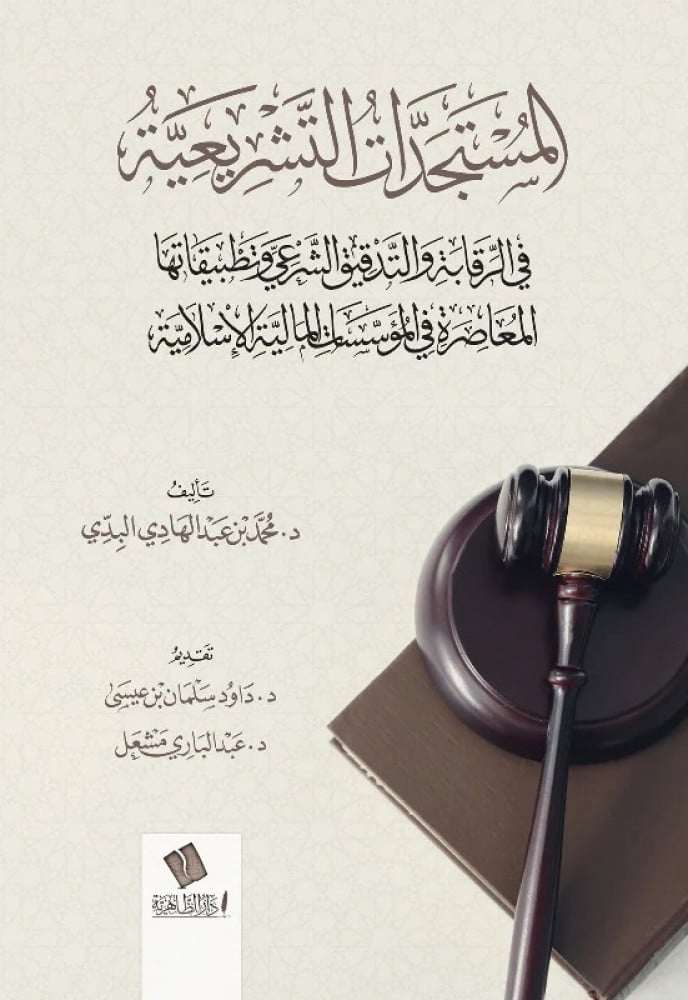 المُسْتَجَدَّاتُ التَّشْرِيعِيَّةُ
في الرَّقَابَةِ وَالتَّدْقِيقِ الشَّرْعِيِّ وَتَطْبِيقَاتِهَا
المُعَاصِرَةِ فِي المُؤَسَّسَاتِ المَالِيَّةِ الإِسْلَامِيَّةِ
تَأليفُ
د. مُحَمَّد بْن عَبْد الهَادِي البِدِّي
تَقدِيمُ
د. دَاوُد سَلْمَان بْن عِيسَىٰ
د. عَبْد البَارِي مَشْعَل
دَارُ الظَّاهِرِيَّة